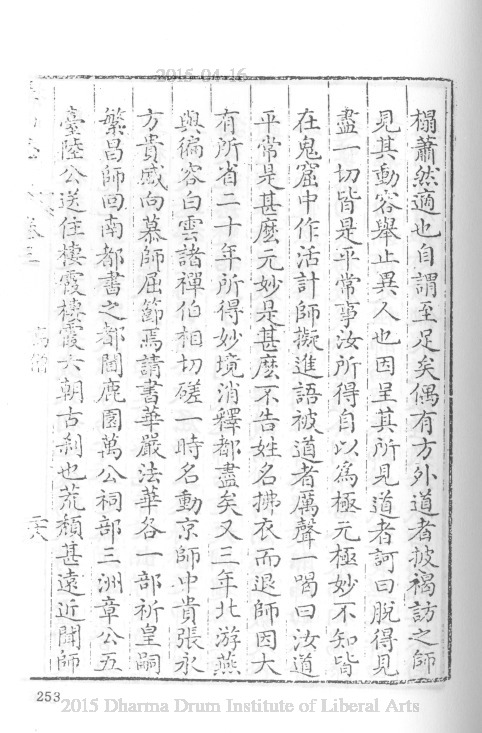 2015-04-16
榻蕭然適也自謂至足矣偶有方外道者披褐訪之師
見其動容舉止異人也因呈其所見道者訶曰脫得見
盡一切皆是平常事汝所得自以為極元極妙不知皆
在鬼窟中作活計師擬進語被道者厲聲一喝曰汝道
平常是甚麽元妙是甚麽不告姓名拂衣而退師因大
有所省二十年所得妙境消釋都盡矣又三年北游燕
與徧容白雲諸禪伯相切磋一時名動京師中貴張永
方貴戚向慕師屈節焉請書華嚴法華各一部祈皇嗣
繁昌師回南都書之都閫鹿園萬公祠部三洲章公五
臺陸公送住棲霞棲霞六朝古刹也荒頽甚遠近聞師
高僧
253
2015 Dharma Drum Institute of Liberal Arts